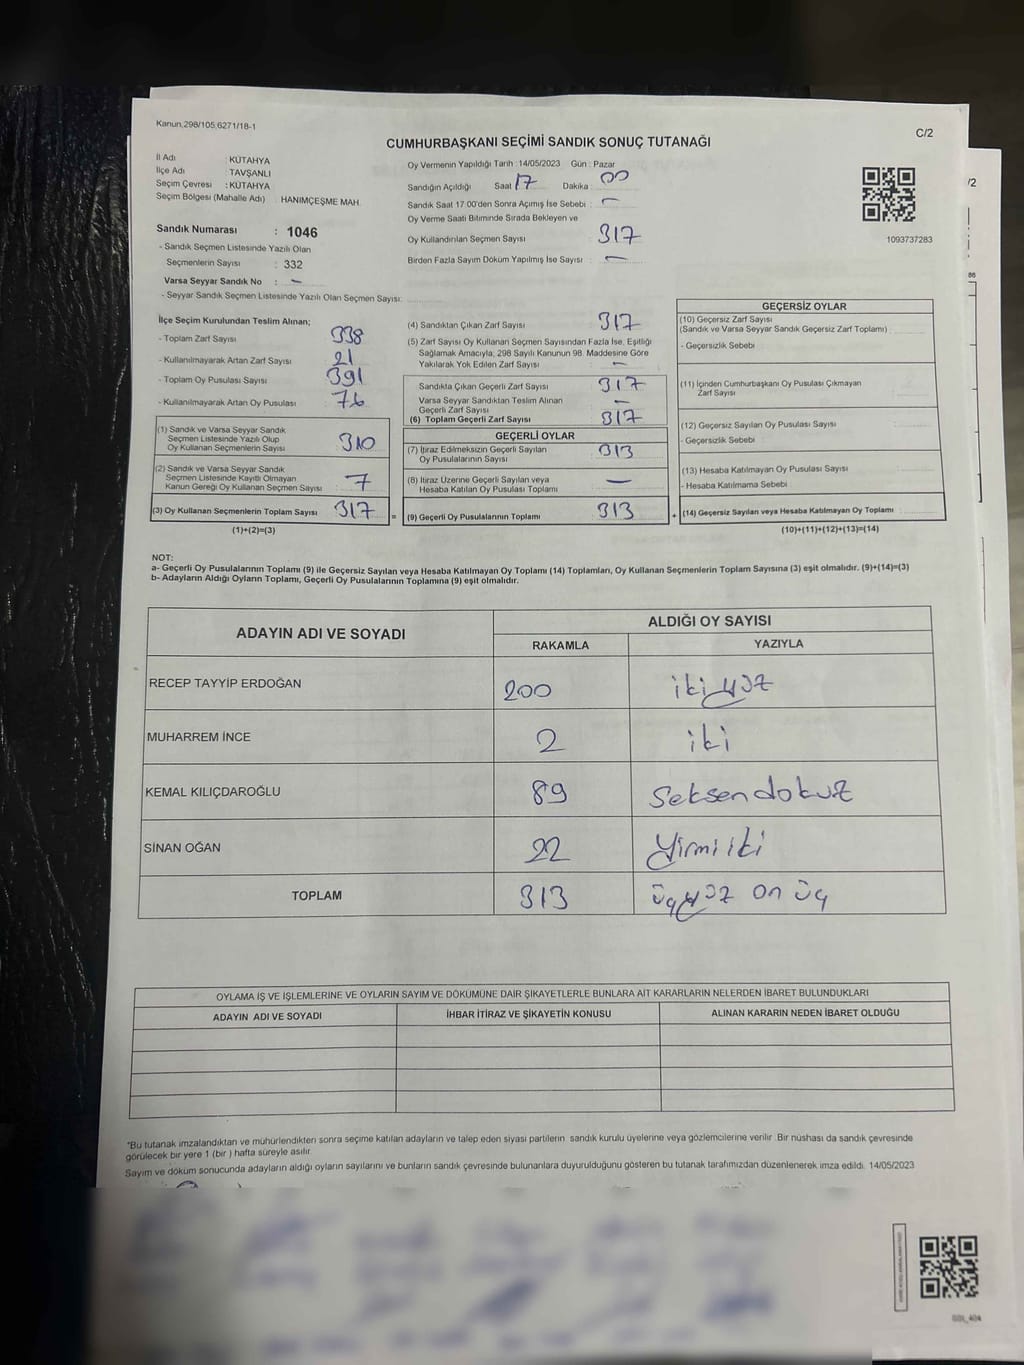 Kanun,298/105,6271/18-1
C/2
CUMHURBAŞKANI SEÇİMİ SANDIK SONUÇ TUTANAĞI
İl Adı : KÜTAHYA
İlçe Adı : TAVŞANLI
Seçim Çevresi : KÜTAHYA
Seçim Bölgesi (Mahalle Adı) : HANIMÇEŞME MAH.
Sandık Numarası : 1046
- Sandık Seçmen Listesinde Yazılı Olan
Seçmenlerin Sayısı : 332
Varsa Seyyar Sandık No : -
- Seyyar Sandık Seçmen Listesinde Yazılı Olan Seçmen Sayısı:
Oy Vermenin Yapıldığı Tarih : 14/05/2023 Gün : Pazar
Sandığın Açıldığı Saat 17 Dakika : 00
Sandık Saat 17:00'den Sonra Açımış İse Sebebi : -
Oy Verme Saati Bitiminde Sırada Bekleyen ve
Oy Kullandırılan Seçmen Sayısı 317
Birden Fazla Sayım Döküm Yapılmış İse Sayısı : -
1093737283
/2
İlçe Seçim Kurulundan Teslim Alınan;
- Toplam Zarf Sayısı 338
- Kullanılmayarak Artan Zarf Sayısı 21
- Toplam Oy Pusulası Sayısı 391
- Kullanılmayarak Artan Oy Pusulası 76
(1) Sandık ve Varsa Seyyar Sandık
Seçmen Listesinde Yazılı Olup
Oy Kullanan Seçmenlerin Sayısı 310
(2) Sandık ve Varsa Seyyar Sandık
Seçmen Listesinde Kayıtlı Olmayan
Kanun Gereği Oy Kullanan Seçmen Sayısı 7
(3) Oy Kullanan Seçmenlerin Toplam Sayısı 317
(1)+(2)=(3)
=
(4) Sandıktan Çıkan Zarf Sayısı 317
(5) Zarf Sayısı Oy Kullanan Seçmen Sayısından Fazla İse, Eşitliği
Sağlamak Amacıyla, 298 Sayılı Kanunun 98. Maddesine Göre
Yakılarak Yok Edilen Zarf Sayısı -
Sandıkta Çıkan Geçerli Zarf Sayısı 317
Varsa Seyyar Sandıktan Teslim Alınan
Geçerli Zarf Sayısı -
(6) Toplam Geçerli Zarf Sayısı 317
GEÇERLİ OYLAR
(7) İtiraz Edilmeksizin Geçerli Sayılan
Oy Pusulalarının Sayısı 313
(8) İtiraz Üzerine Geçerli Sayılan veya
Hesaba Katılan Oy Pusulası Toplamı -
(9) Geçerli Oy Pusulalarının Toplamı 313
+
GEÇERSİZ OYLAR
(10) Geçersiz Zarf Sayısı
(Sandık ve Varsa Seyyar Sandık Geçersiz Zarf Toplamı) :
- Geçersizlik Sebebi :
(11) İçinden Cumhurbaşkanı Oy Pusulası Çıkmayan
Zarf Sayısı
(12) Geçersiz Sayılan Oy Pusulası Sayısı
- Geçersizlik Sebebi :
(13) Hesaba Katılmayan Oy Pusulası Sayısı
- Hesaba Katılmama Sebebi
(14) Geçersiz Sayılan veya Hesaba Katılmayan Oy Toplamı :
(10)+(11)+(12)+(13)=(14)
NOT:
a- Geçerli Oy Pusulalarının Toplamı (9) ile Geçersiz Sayılan veya Hesaba Katılmayan Oy Toplamı (14) Toplamları, Oy Kullanan Seçmenlerin Toplam Sayısına (3) eşit olmalıdır. (9)+(14)=(3)
b- Adayların Aldığı Oyların Toplamı, Geçerli Oy Pusulalarının Toplamına (9) eşit olmalıdır.
ADAYIN ADI VE SOYADI
ALDIĞI OY SAYISI
RAKAMLA YAZIYLA
RECEP TAYYİP ERDOĞAN 200 ikiyüz
MUHARREM İNCE 2 iki
KEMAL KILIÇDAROĞLU 89 seksendokuz
SİNAN OĞAN 22 yirmiiki
TOPLAM 313 üçyüz on üç
OYLAMA İŞ VE İŞLEMLERİNE VE OYLARIN SAYIM VE DÖKÜMÜNE DAİR ŞİKAYETLERLE BUNLARA AİT KARARLARIN NELERDEN İBARET BULUNDUKLARI
ADAYIN ADI VE SOYADI İHBAR İTİRAZ VE ŞİKAYETİN KONUSU ALINAN KARARIN NEDEN İBARET OLDUĞU
"Bu tutanak imzalandıktan ve mühürlendikten sonra seçime katılan adayların ve talep eden siyasi partilerin sandık kurulu üyelerine veya gözlemcilerine verilir .Bir nüshası da sandık çevresinde
görülecek bir yere 1 (bir ) hafta süreyle asılır.
Sayım ve döküm sonucunda adayların aldığı oyların sayılarını ve bunların sandık çevresinde bulunanlara duyurulduğunu gösteren bu tutanak tarafımızdan düzenlenerek imza edildi. 14/05/2023